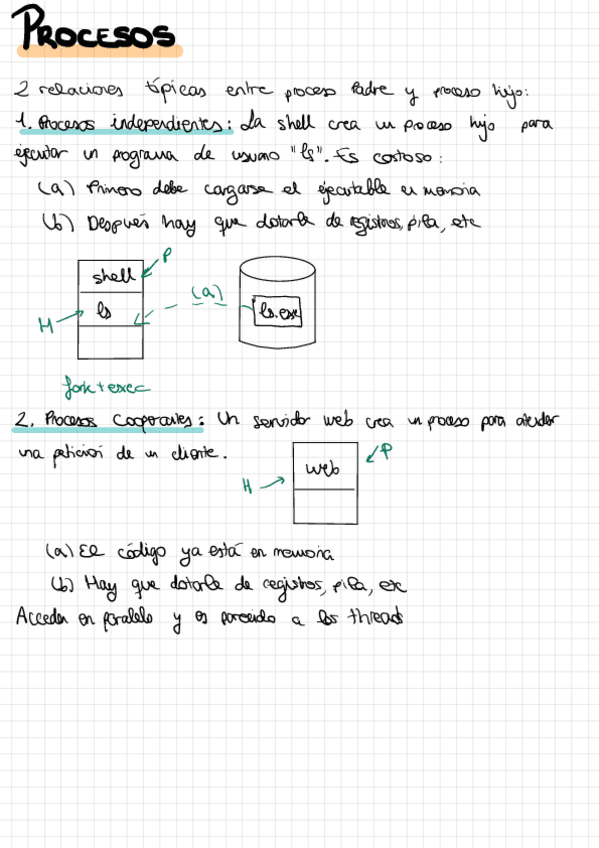 PROCESOS
2 relaciones típicas entre proceso Padre y proceso hijo:
1. Procesos independientes: La shell crea un proceso hijo para
ejecutar un programa de usuario "ls". Es costoso:
(a) Primero debe cargarse el ejecutable en memoria
(b) Después hay que dotarle de registros, pila, etc
P
shell
(a)
ls
ls.exe
H
fork + exec
2. Procesos Cooperantes: Un servidor web crea un proceso para atender
una petición de un cliente.
P
web
H
(a) El código ya está en memoria
(b) Hay que dotarle de registros, pila, etc
Acceden en paralelo y es parecido a los threads